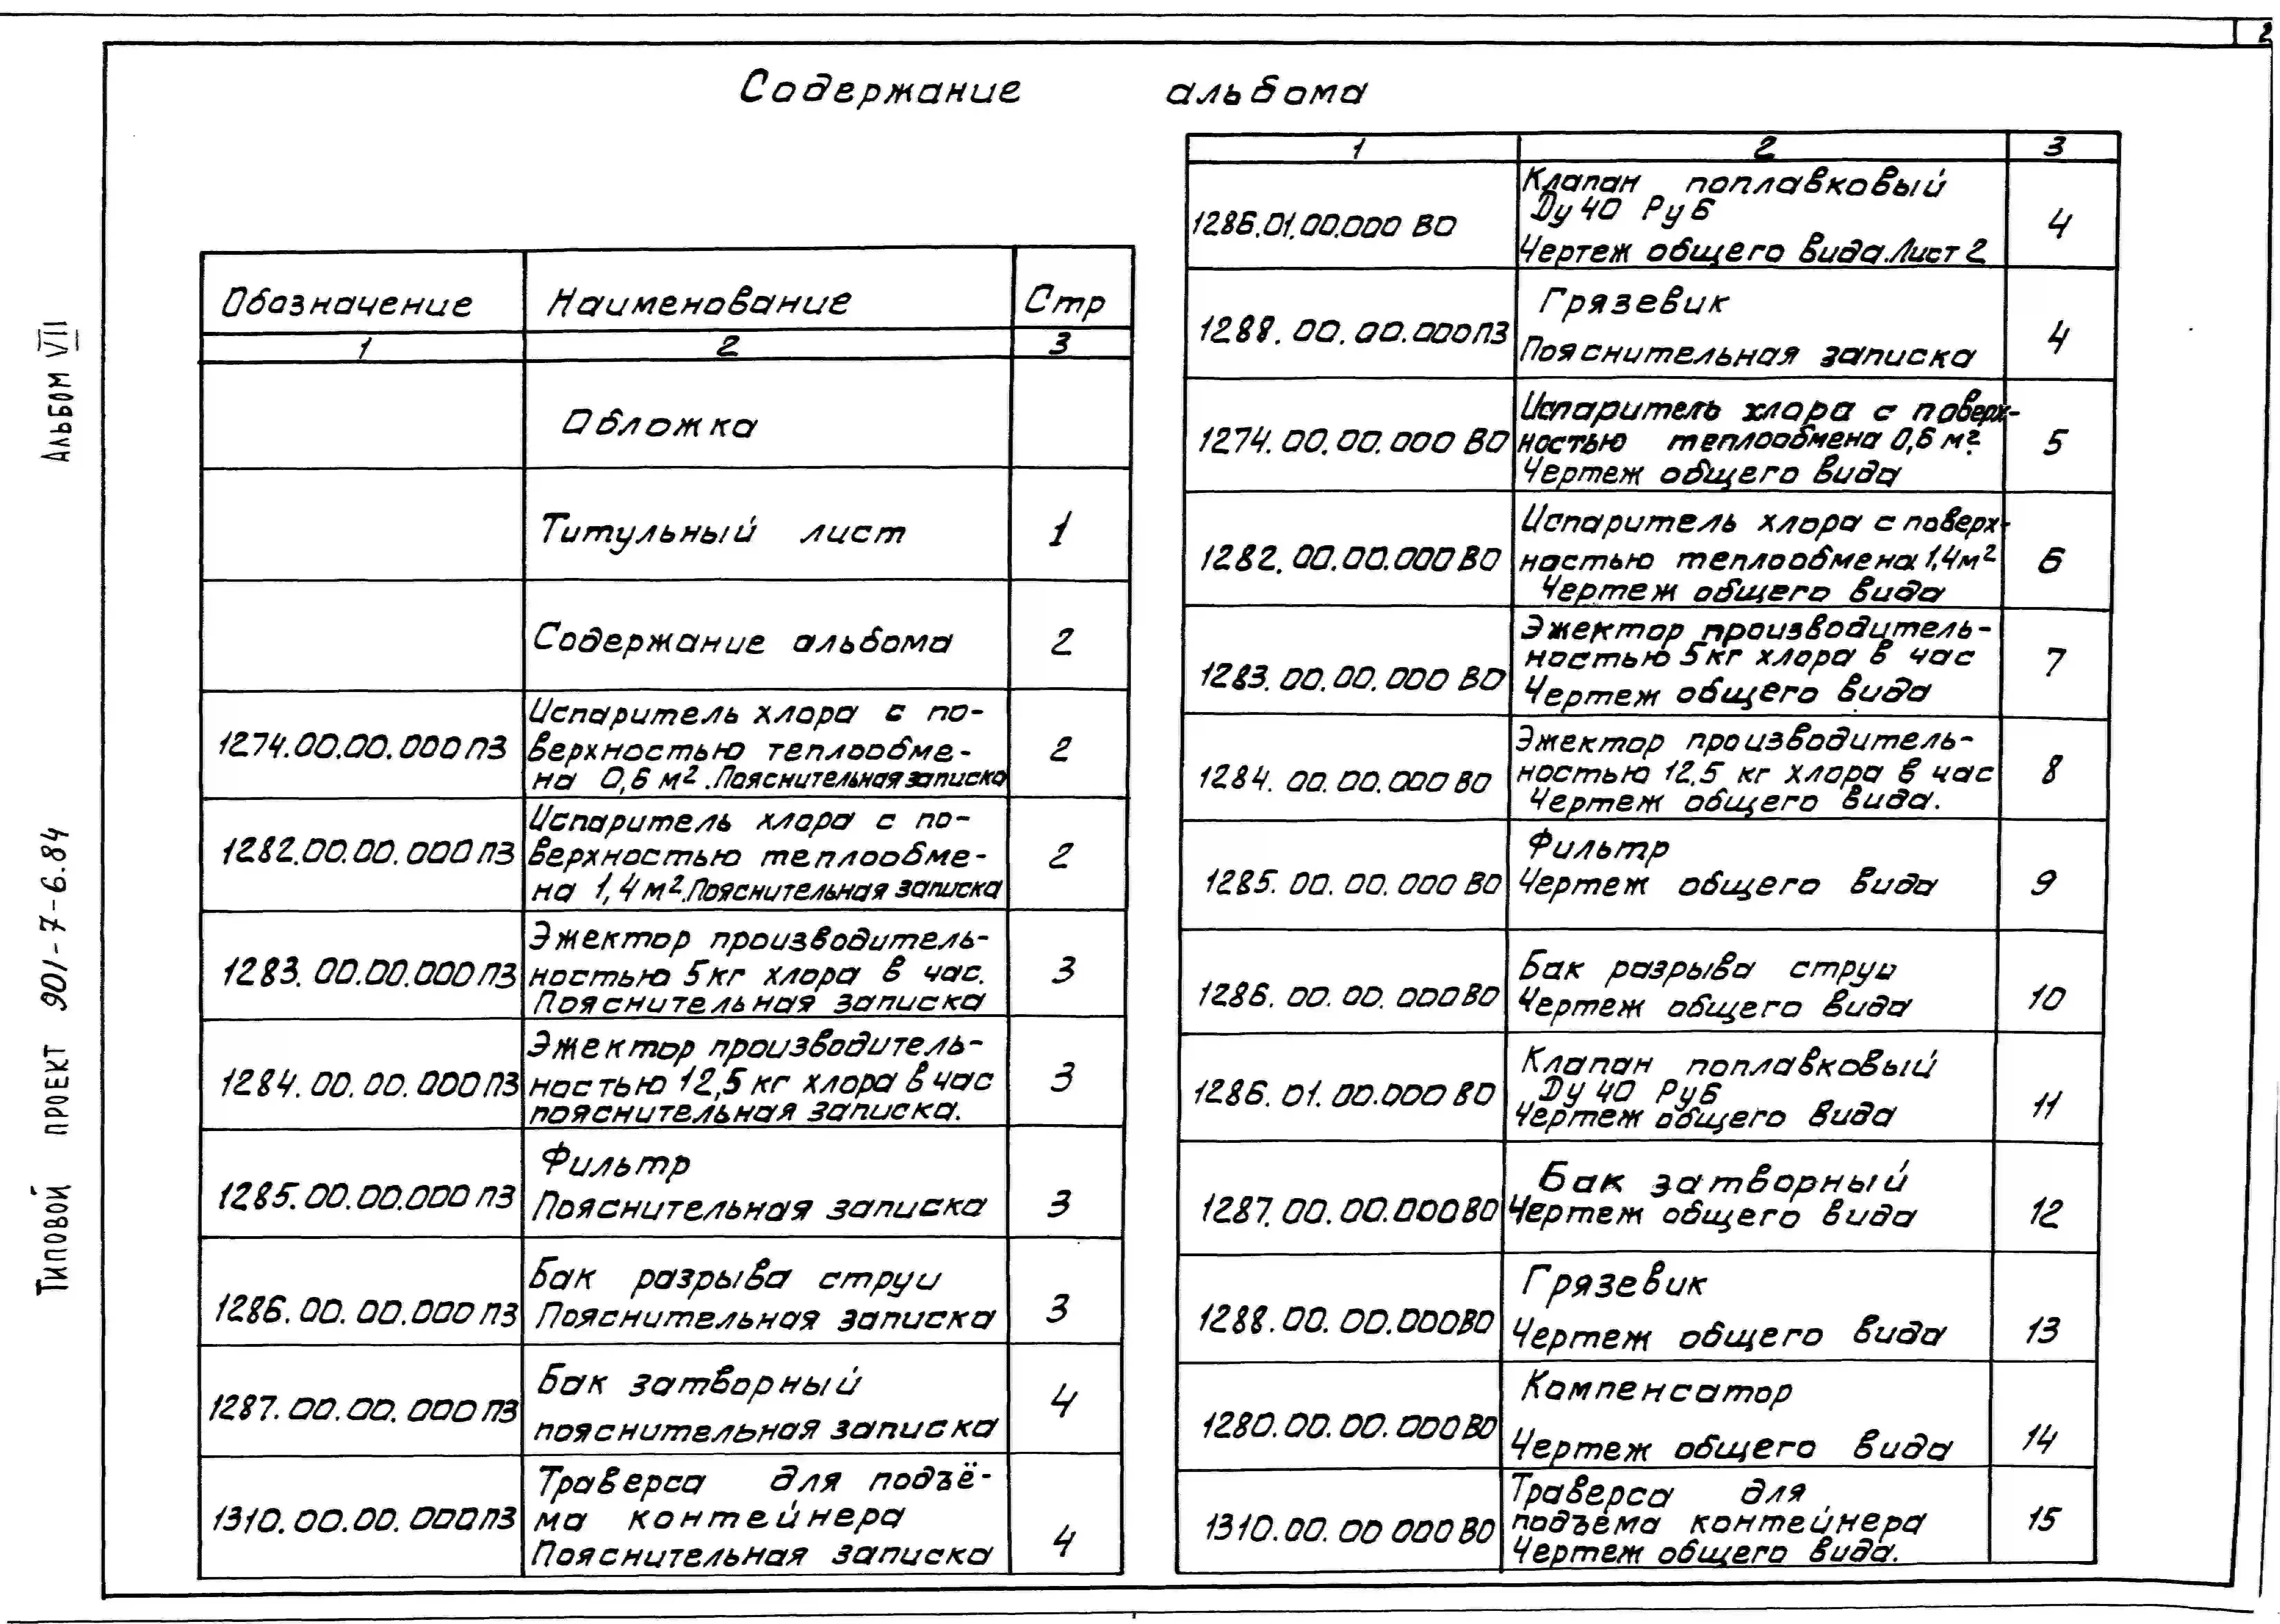 2
Содержание альбома
Альбом VII
Типовой проект 901-7-6.84
Обозначение Наименование Стр
1 2 3
Обложка
Титульный лист 1
Содержание альбома 2
1274.00.00.000 ПЗ
Испаритель хлора с по-
верхностью теплообме-
на 0,6 м². Пояснительная записка
2
1282.00.00.000 ПЗ
Испаритель хлора с по-
верхностью теплообме-
на 1,4 м². Пояснительная записка
2
1283.00.00.000 ПЗ
Эжектор производитель-
ностью 5кг хлора в час.
Пояснительная записка
3
1284.00.00.000 ПЗ
Эжектор производитель-
ностью 12,5 кг хлора в час
пояснительная записка.
3
1285.00.00.000 ПЗ
Фильтр
Пояснительная записка
3
1286.00.00.000 ПЗ
Бак разрыва струи
Пояснительная записка
3
1287.00.00.000 ПЗ
Бак затворный
пояснительная записка
4
1310.00.00.000 ПЗ
Траверса для подъё-
ма контейнера
Пояснительная записка
4
1 2 3
1286.01.00.000 ВО
Клапан поплавковый
Ду 40 Ру 6
Чертеж общего вида. Лист 2
4
1288.00.00.000 ПЗ
Грязевик
Пояснительная записка
4
1274.00.00.000 ВО
Испаритель хлора с поверх-
ностью теплообмена 0,6 м².
Чертеж общего вида
5
1282.00.00.000 ВО
Испаритель хлора с поверх-
ностью теплообмена 1,4 м²
Чертеж общего вида
6
1283.00.00.000 ВО
Эжектор производитель-
ностью 5кг хлора в час
Чертеж общего вида
7
1284.00.00.000 ВО
Эжектор производитель-
ностью 12.5 кг хлора в час
Чертеж общего вида.
8
1285.00.00.000 ВО
Фильтр
Чертеж общего вида
9
1286.00.00.000 ВО
Бак разрыва струи
Чертеж общего вида
10
1286.01.00.000 ВО
Клапан поплавковый
Ду 40 Ру 6
Чертеж общего вида
11
1287.00.00.000 ВО
Бак затворный
Чертеж общего вида
12
1288.00.00.000 ВО
Грязевик
Чертеж общего вида
13
1280.00.00.000 ВО
Компенсатор
Чертеж общего вида
14
1310.00.00 000 ВО
Траверса для
подъёма контейнера
Чертеж общего вида.
15